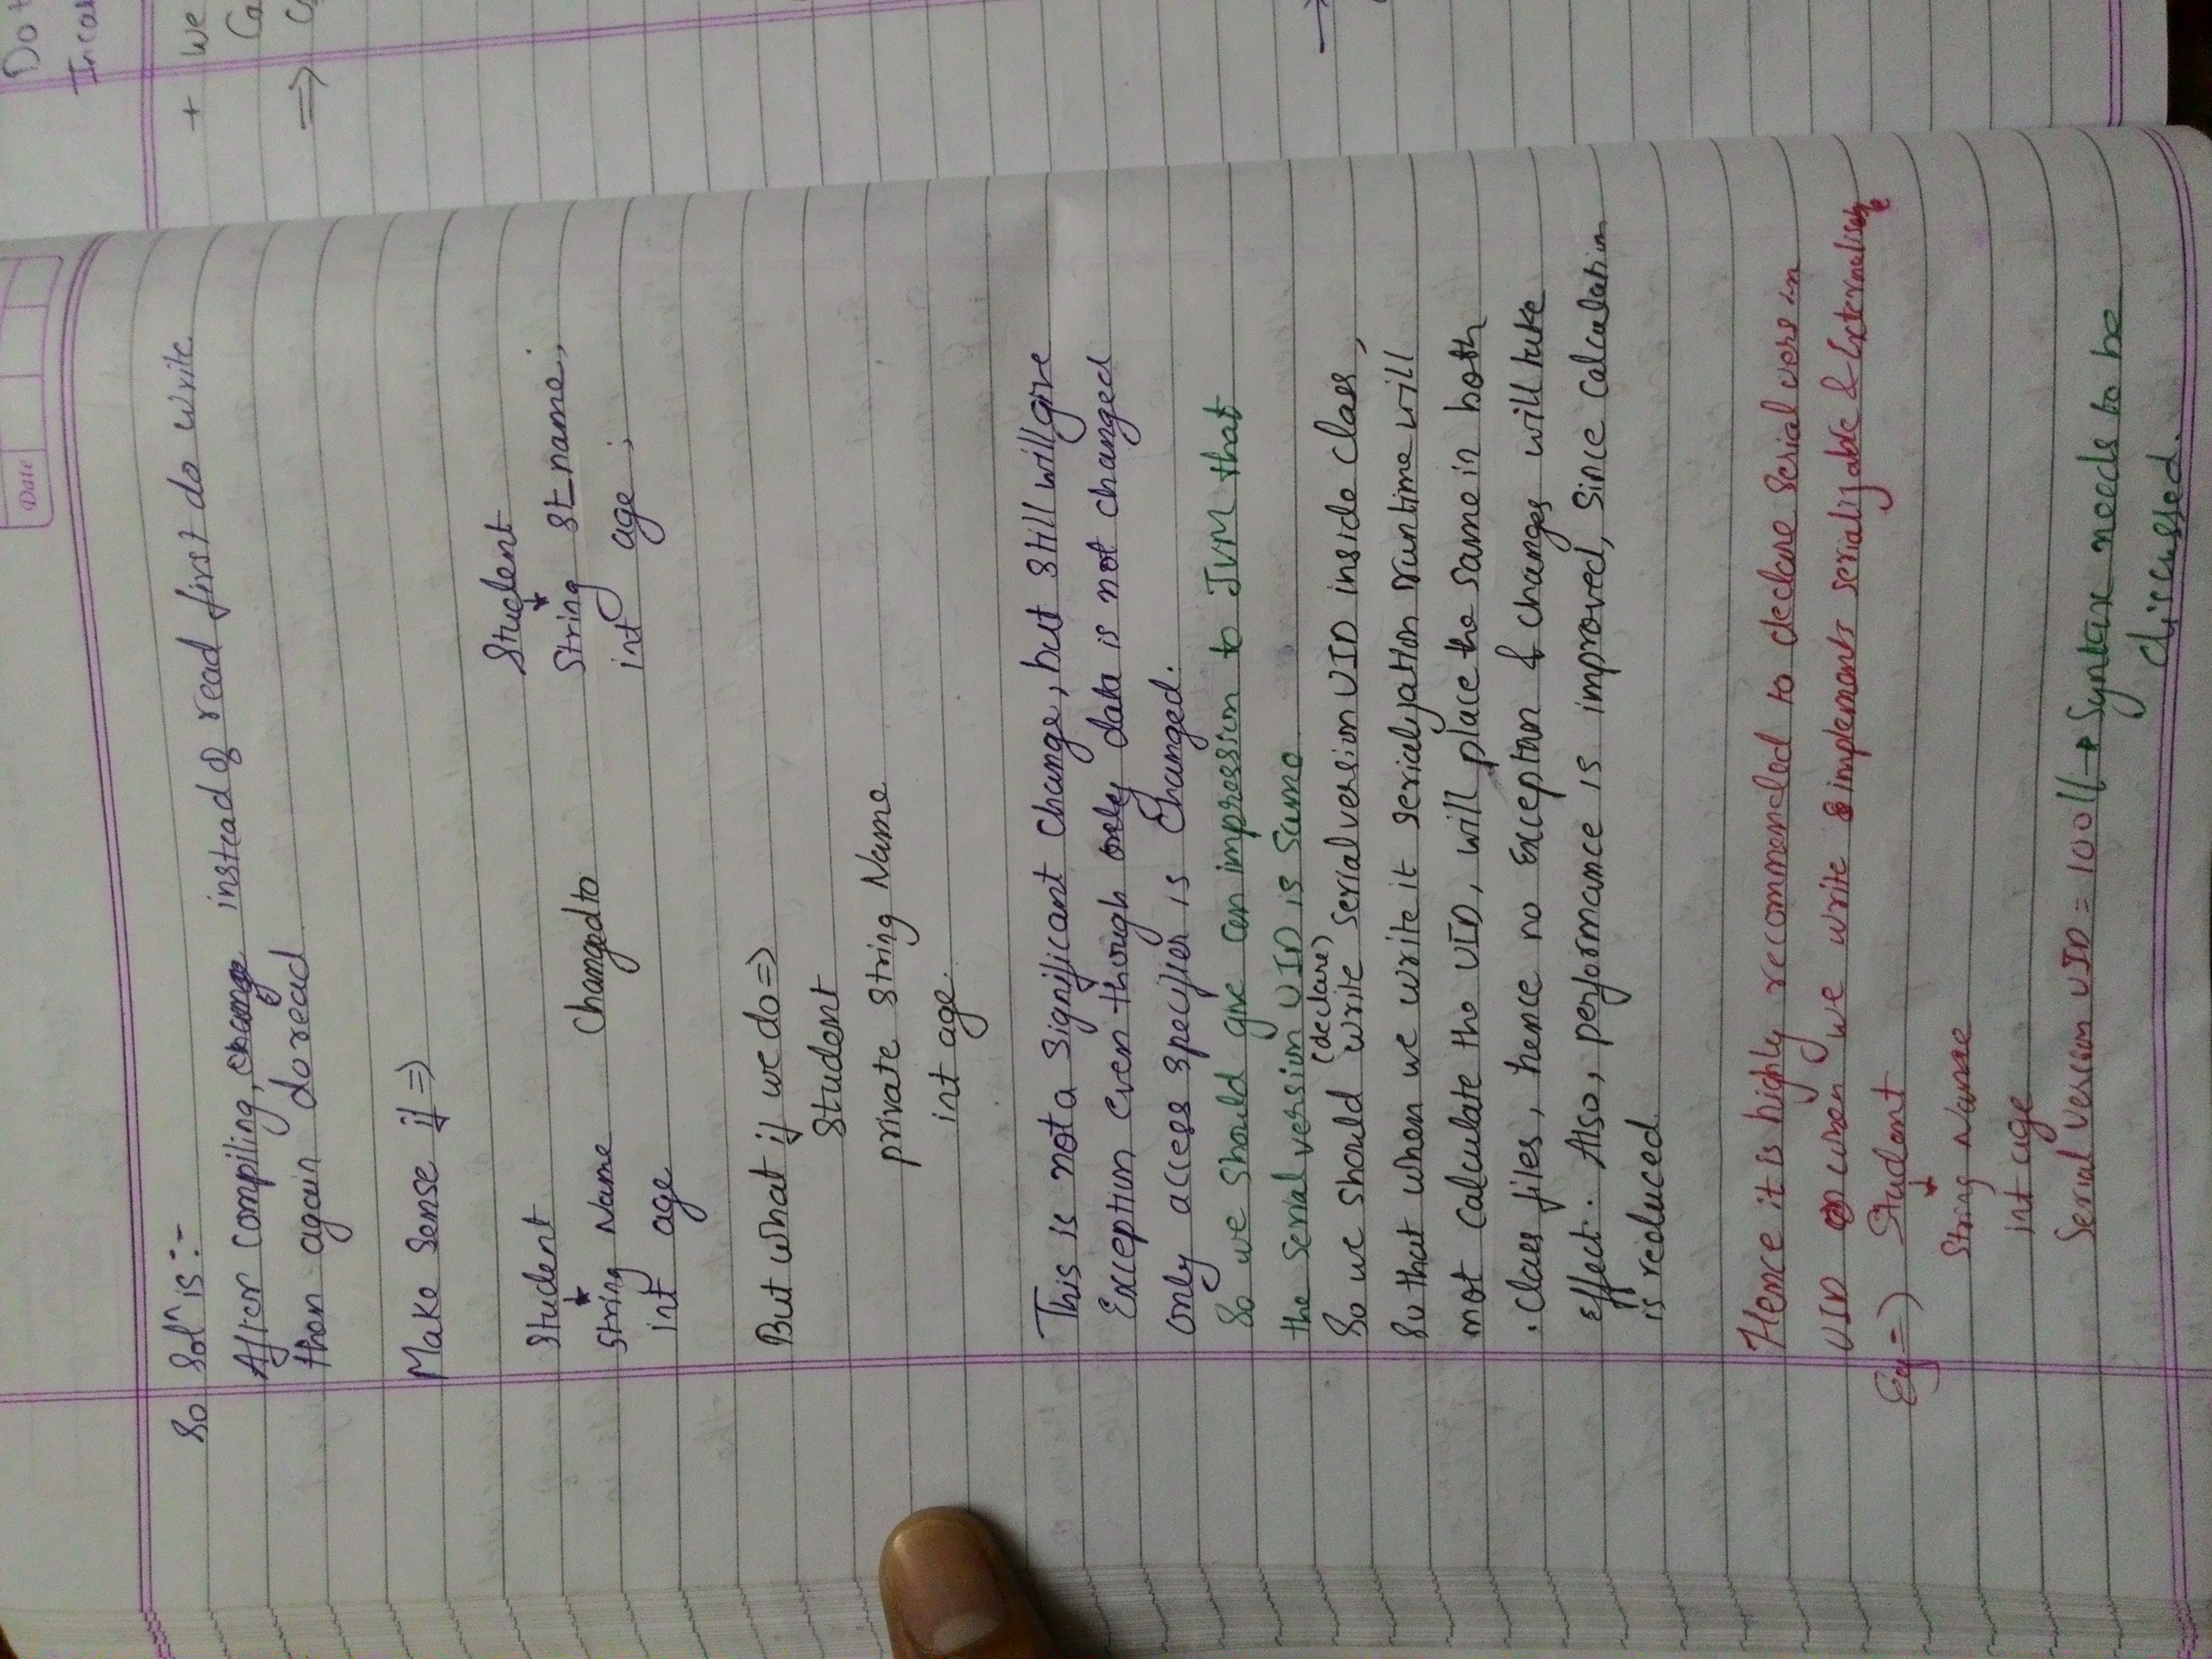 Date
So Solⁿ is :-
After compiling, change instead of read first do write
then again do read
Make Sense if =>
Student Student
String Name Changed to String St_name;
int age int age ;
But what if we do =>
Student
private String Name
int age.
This is not a Significant Change, but still will give
Exception even though only data is not changed
only access specifier is Changed.
So we should give an impression to JVM that
the serial version UID is same
(declare)
So we should write serialversion UID inside class,
So that when we write it serialization runtime will
not calculate the UID, will place the same in both
.class files, hence no Exception & changes will take
effect. Also, performance is improved, since calculation
is reduced.
Hence it is highly recommended to declare Serial version
UID when we write implements serializable & Externalisable
Eg =) Student
String Name
int age
Serial Version UID = 100 // → Syntax needs to be
discussed.
Do
+ We
Ca
=>